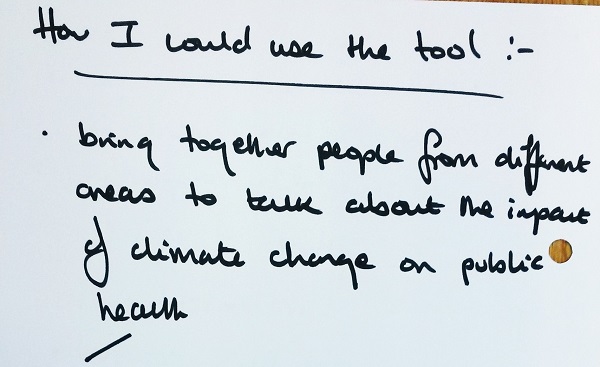 How I could use the tool :-
· bring together people from different
areas to talk about the impact
of climate change on public
health